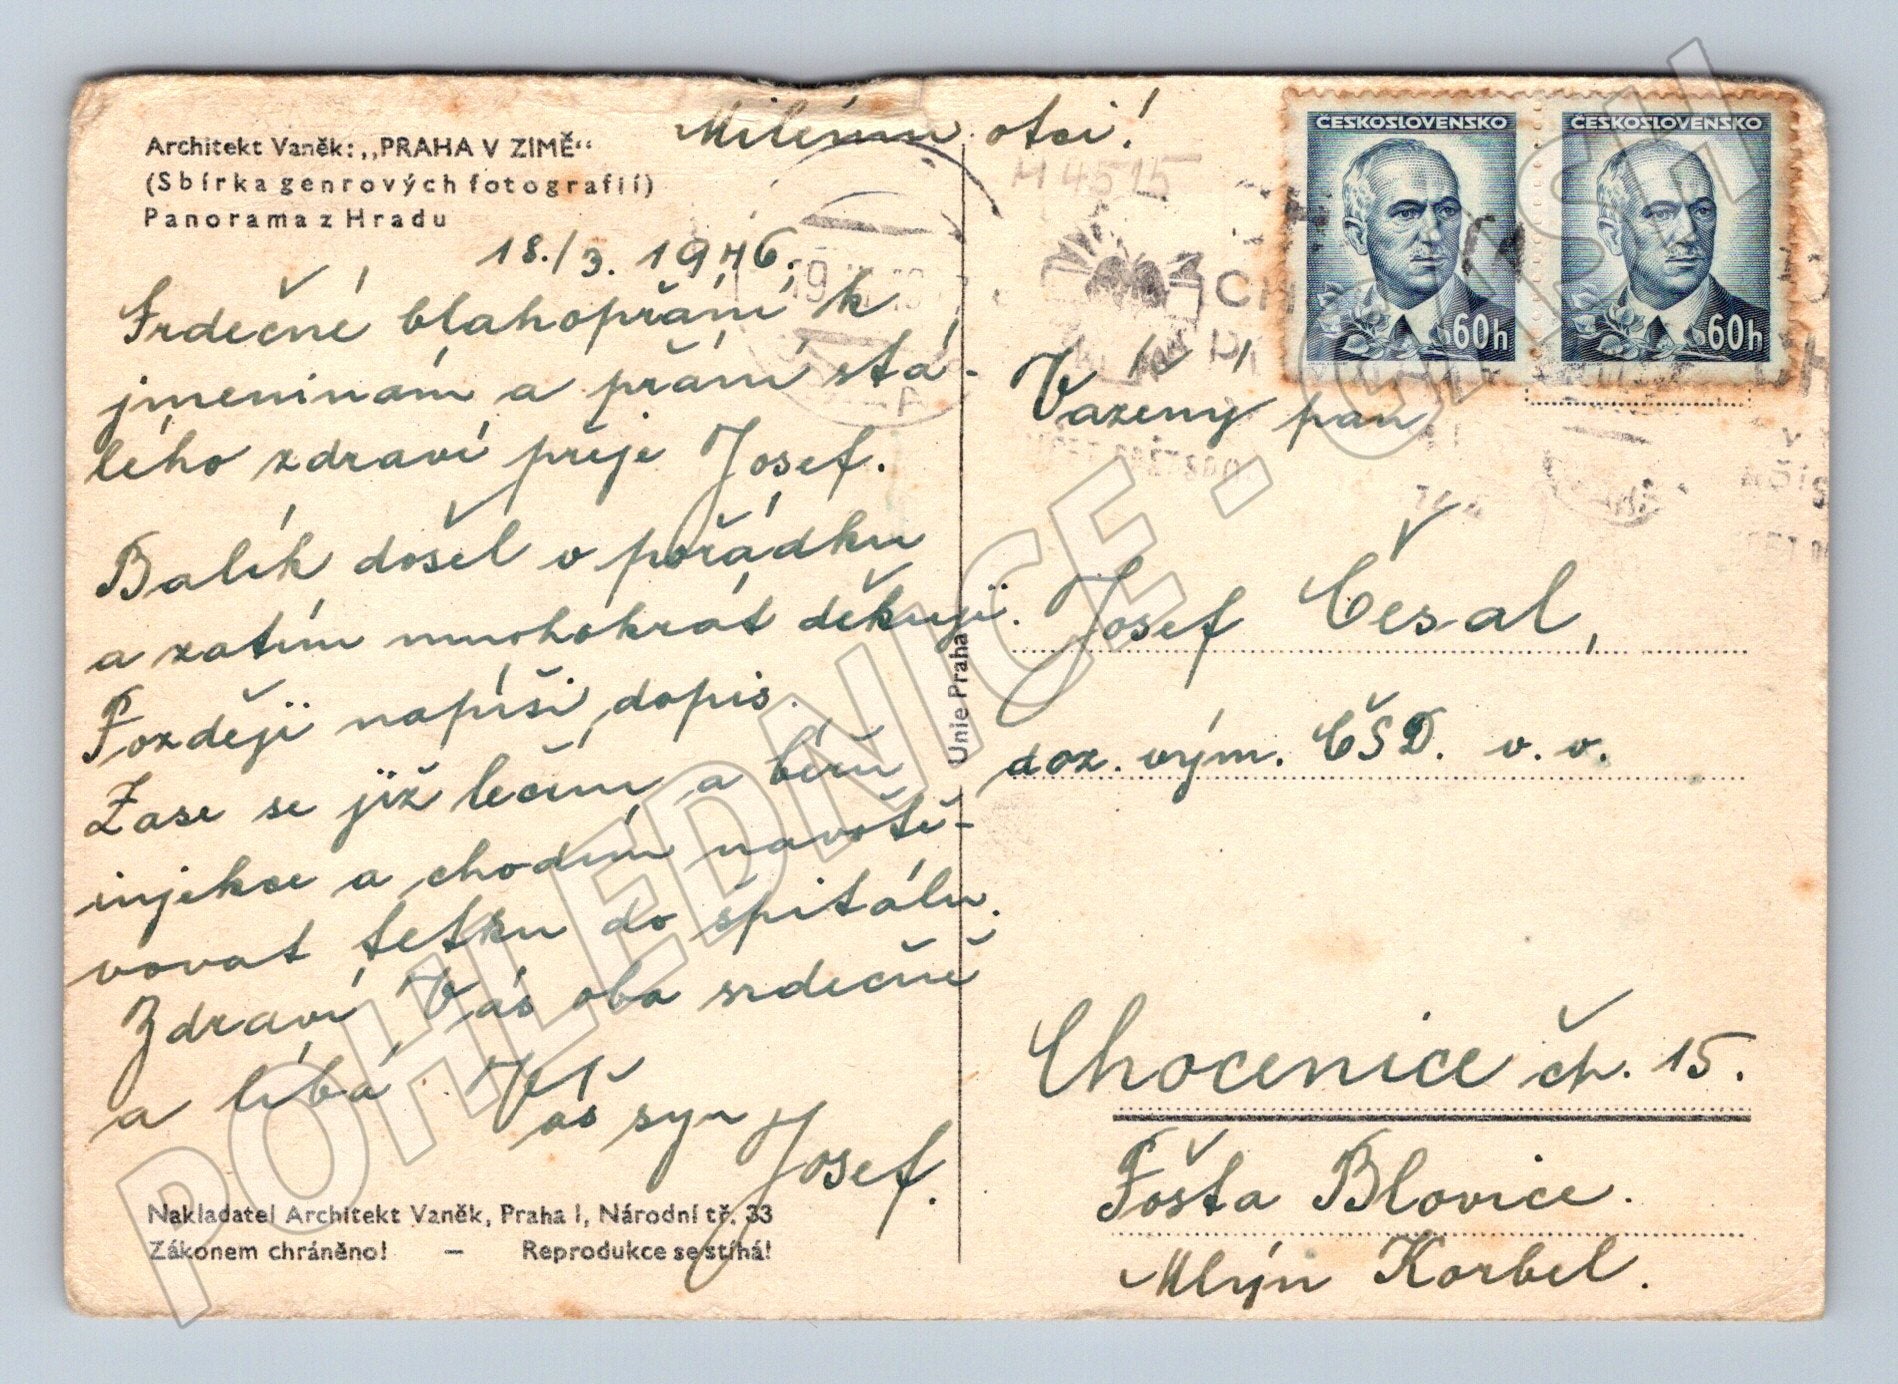 Milému otci!
Architekt Vaněk: „PRAHA V ZIMĚ“
(Sbírka genrových fotografií)
Panorama z Hradu
18./3. 1946.
Srdečné blahopřání k
jmeninám a přání stá-
lého zdraví přeje Josef.
Balík došel v pořádku
a zatím mnohokrát děkuji.
Později napíši dopis.
Zase se již léčím a béřu
injekce a chodím navště-
vovat tetku do špitálu.
Zdraví Vás oba srdečně
a líbá Váš
syn Josef.
Nakladatel Architekt Vaněk, Praha I, Národní tř. 33
Zákonem chráněno! – Reprodukce se stíhá!
Unie Praha
ČESKOSLOVENSKO
60h
ČESKOSLOVENSKO
60h
Vážený pan
Josef Česal,
doz. vým. ČSD. v. v.
Chocenice čp. 15.
Pošta Blovice.
Mlýn Korbel.
POHLEDNICE - CASH